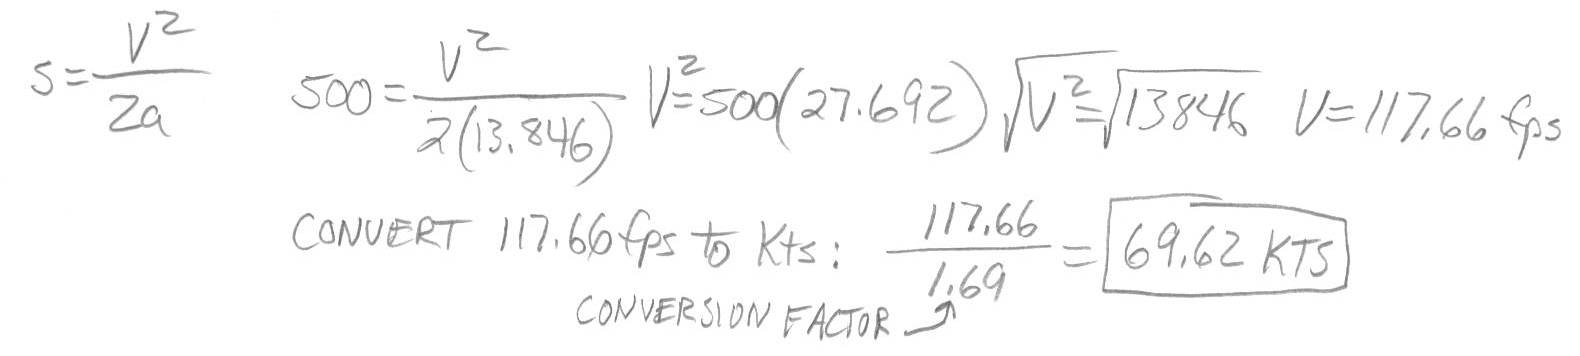 s = V²/2a   500 = V²/2(13.846)   V² = 500(27.692)   √V² = √13846   V = 117.66 fps
CONVERT 117.66 fps to Kts: 117.66/1.69 = 69.62 KTS
CONVERSION FACTOR